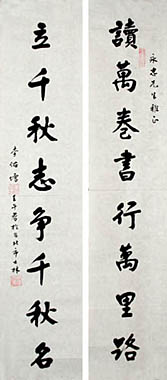 永忠先生雅正
讀萬卷書行萬里路
立千秋志争千秋名